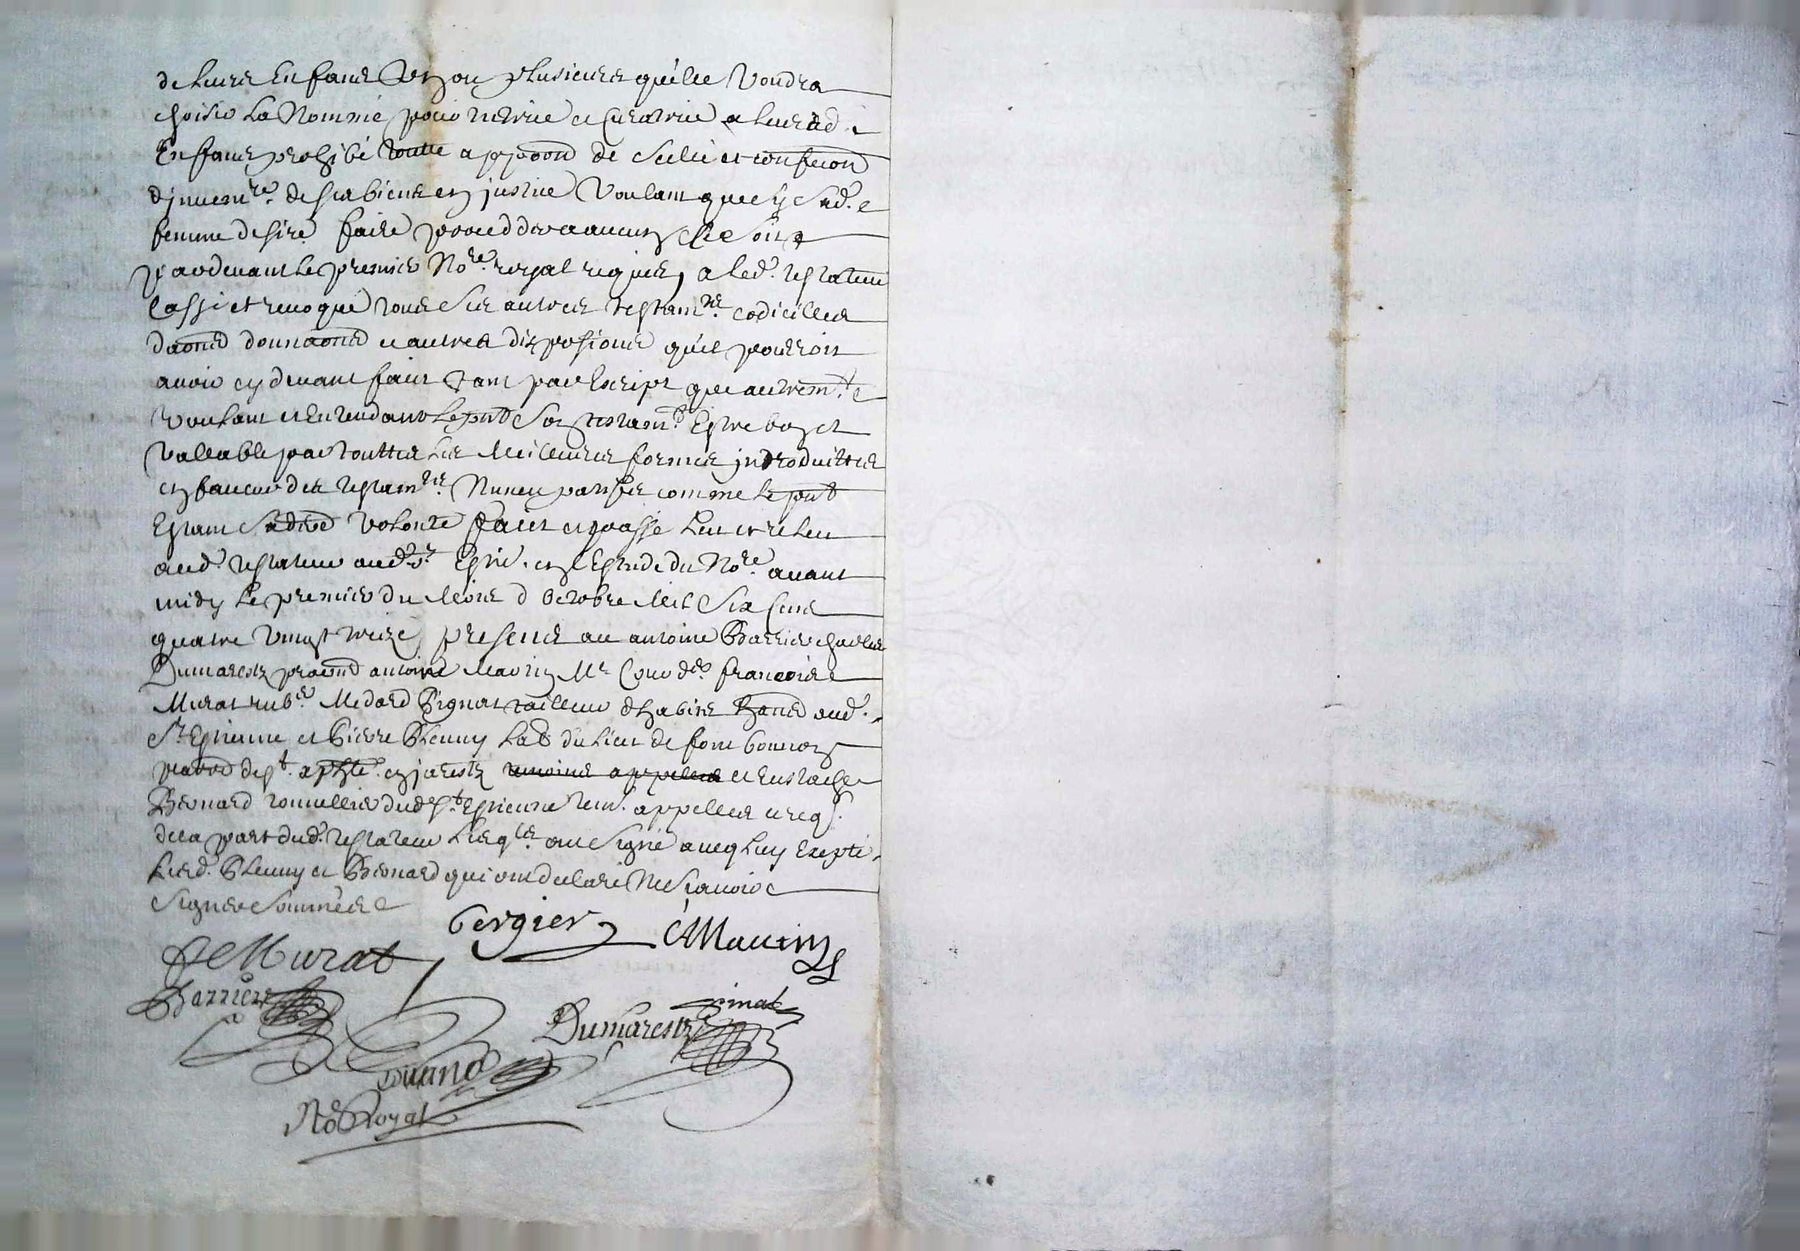 de leurs Enfans Un ou plusieurs quelle Voudra
choisir La Nommé pour tutrice et Curatrice a leursd.
Enfans prohibé toutte apposon de Scellé et confecon
dinvenre. de ses biens en justice Voulant que sy Sad.
femme desire faire proceder a aucun elle soit
pardevant le premier Nore. royal requis, a led. testateur
Cassé et revoqué tous Ses autres testamns. codicilles
donaons et autres dispositions quil pourroit
avoir cy devant fait tant par Escript que autremt.
voulant et Entendant le pnt Son testamt. Estre bon et
Vallable par touttes Les Meilleures formes introduittes
en faveur des testamns. Nuncupatifs comme le pnt
Estant Sad. volonté faict et passé leu et releu
aud. testateur aud. St. Estne. en l'Estude du Nore. avant
midy le premier du Mois d'Octobre Mil Six Cens
quatre Vingt treize presens me antoine Barrier charles
Dumarestz antoine Mavin Mr. Cord. françois
Murat rubr. Medard Pignat tailleur dhabits aud.
St Estienne et Pierre Bleuny Labr du lieu de
de St. en jarestz et Eustache
Bernard tonnellier dud. St. Estienne tem. appelles et reqs.
de la part dud. testateur Lesqls. ont Signé avecq luy Exepté
Lesd. Bleuny et Bernard qui ont declaré Ne Scavoir
Signer Sommés
Vergier Mavin
Murat
Barrier
pinat
Dumarestz
Durand
No Royal